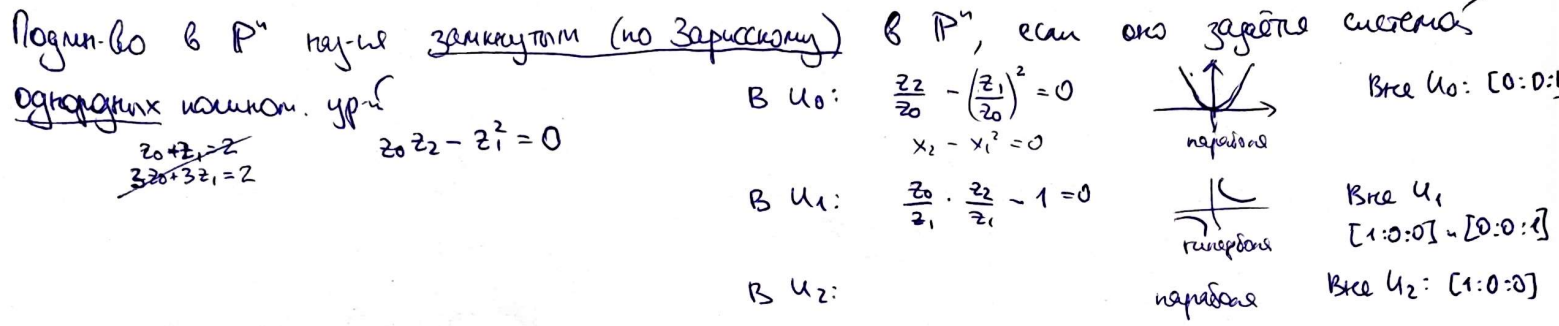 Подмн-во в ℙⁿ наз-ся замкнутым (по Зарисскому) в ℙⁿ, если оно задаётся системой
однородных полином. ур-й
z₀+z₁=2
3z₀+3z₁=2
z₀z₂ − z₁² = 0
В U₀: z₂/z₀ − (z₁/z₀)² = 0 Вне U₀: [0:0:1
x₂ − x₁² = 0 парабола
В U₁: z₀/z₁ · z₂/z₁ − 1 = 0 гипербола Вне U₁
[1:0:0] и [0:0:1]
В U₂: парабола Вне U₂: [1:0:0]